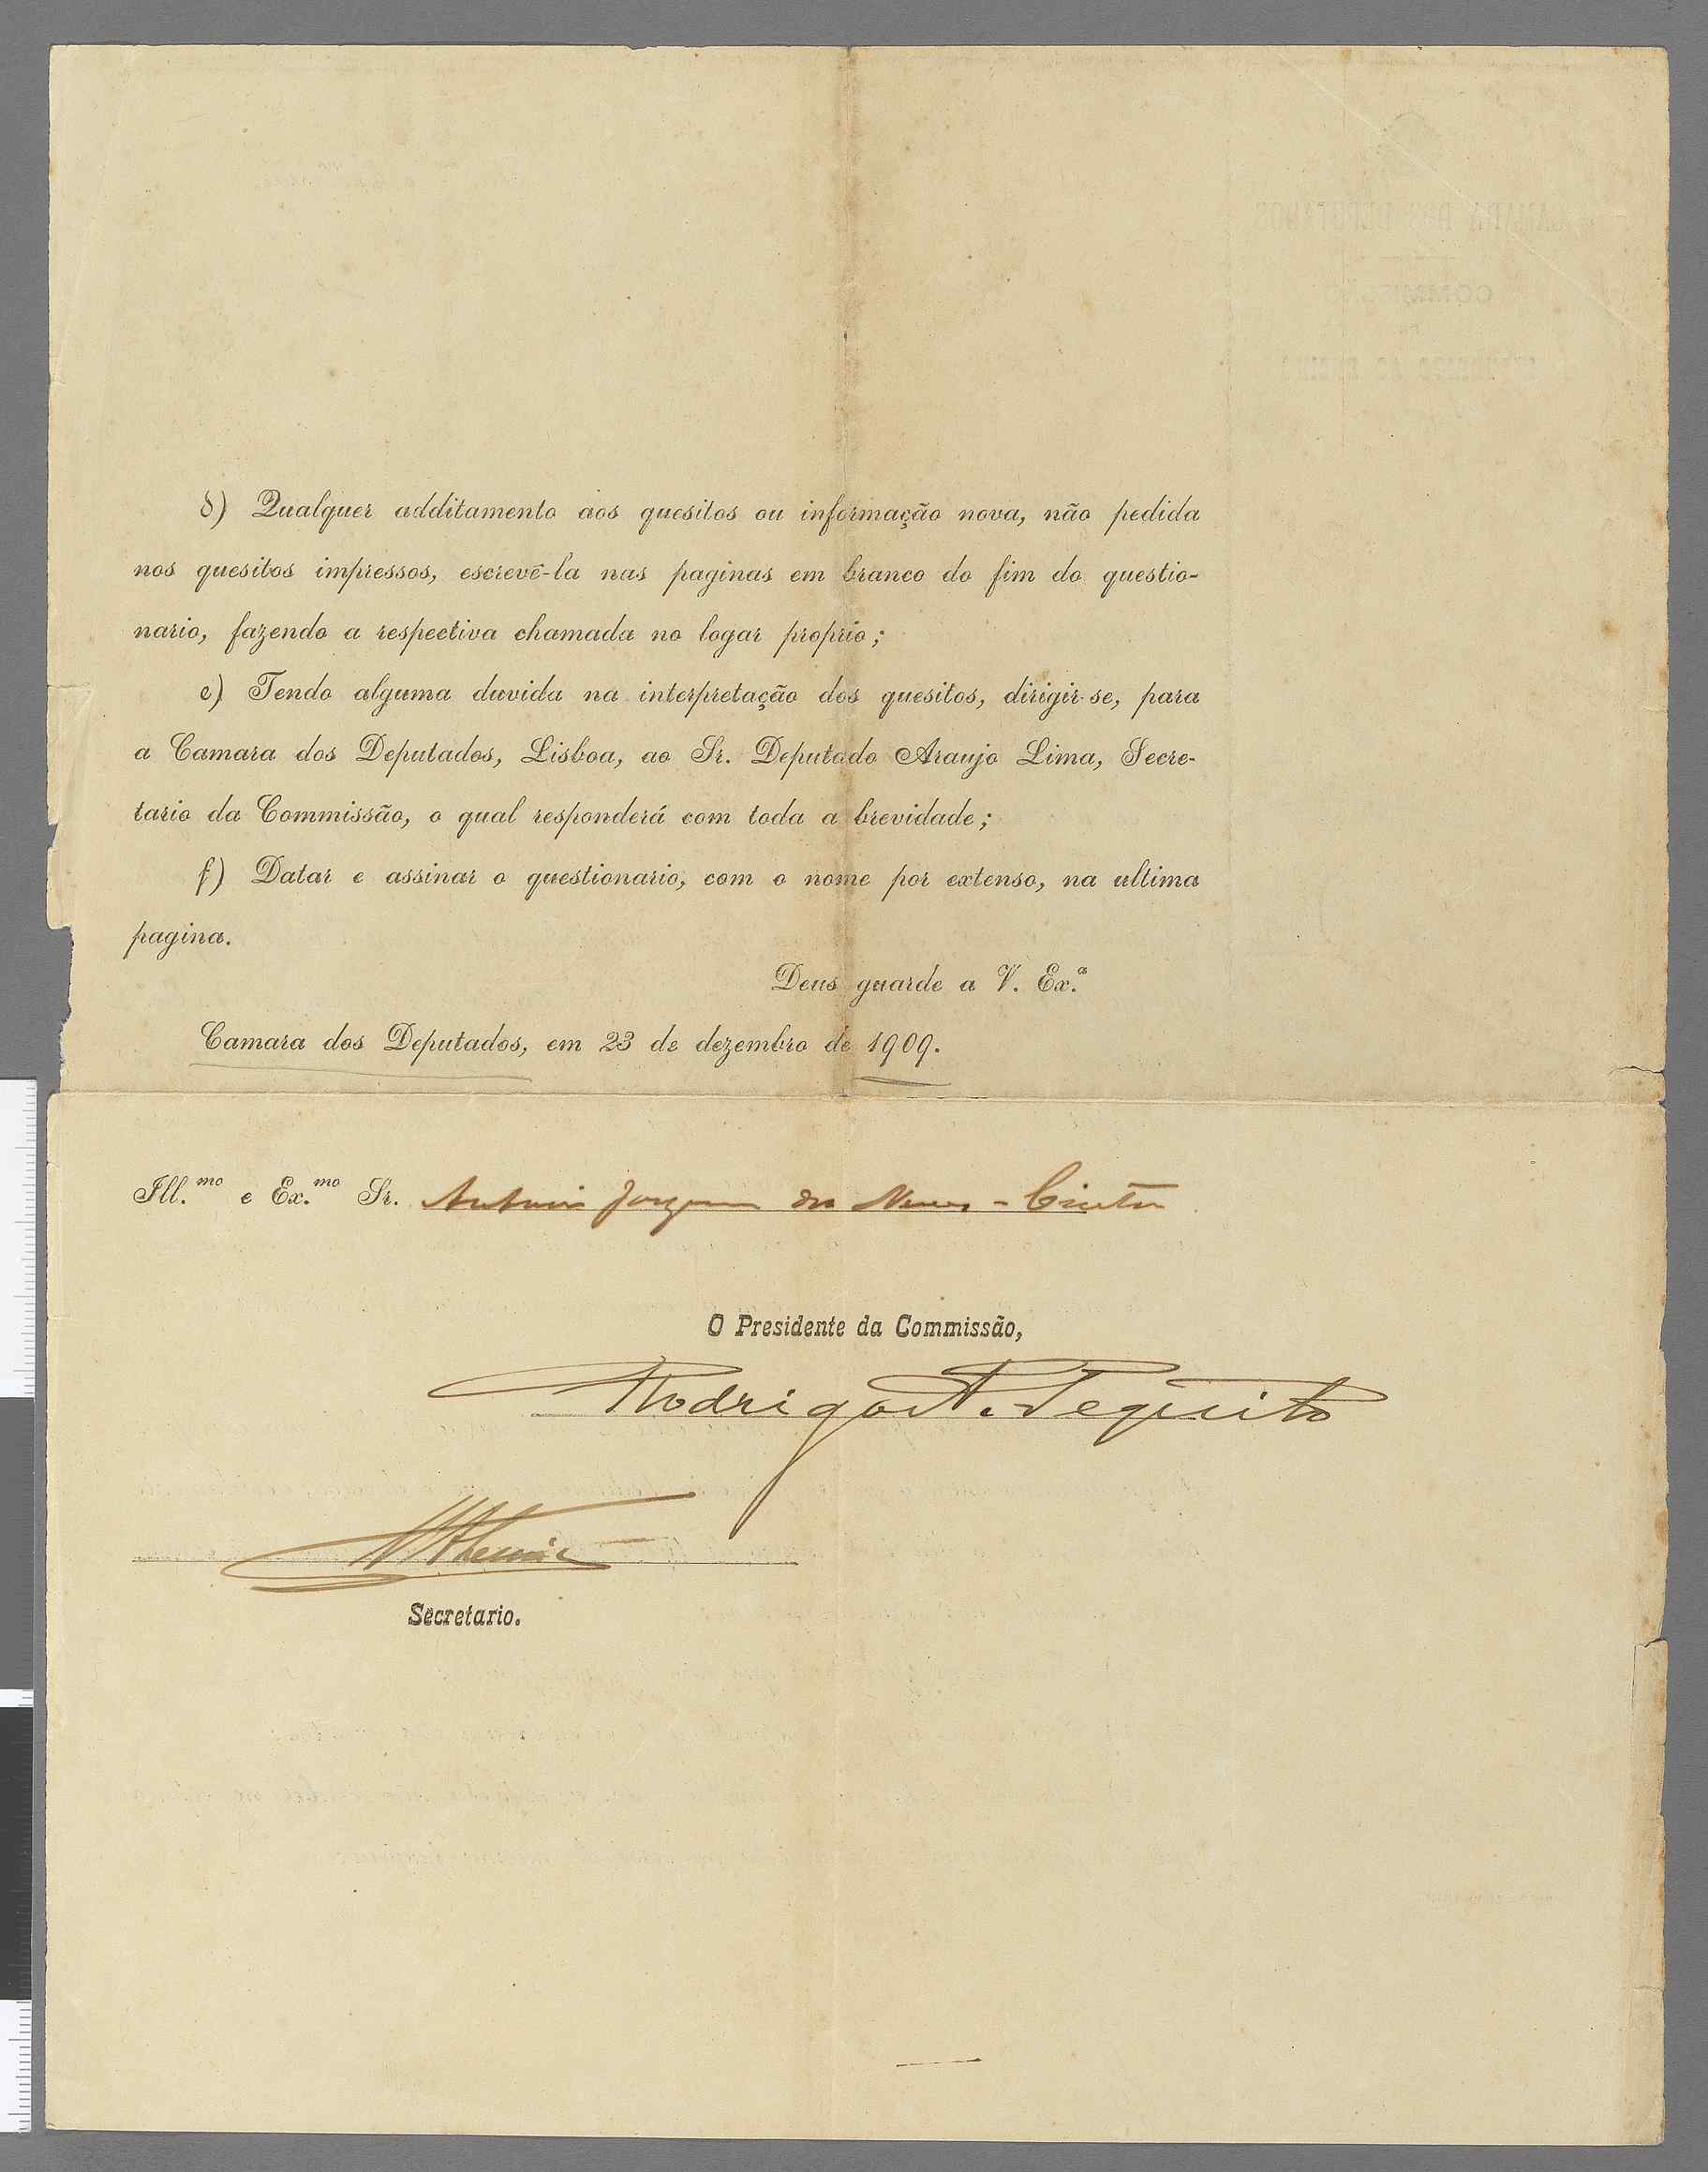 d) Qualquer additamento aos quesitos ou informação nova, não pedida
nos quesitos impressos, escrevê-la nas paginas em branco do fim do questio-
nario, fazendo a respectiva chamada no logar proprio;
e) Tendo alguma duvida na interpretação dos quesitos, dirigir-se, para
a Camara dos Deputados, Lisboa, ao Sr. Deputado Araujo Lima, Secre-
tario da Commissão, o qual responderá com toda a brevidade;
f) Datar e assinar o questionario, com o nome por extenso, na ultima
pagina.
Deus guarde a V. Ex.ª
Camara dos Deputados, em 23 de dezembro de 1909.
Ill.mo e Ex.mo Sr. Antonio
O Presidente da Commissão,
Rodrigo A. Pequito
Secretario.